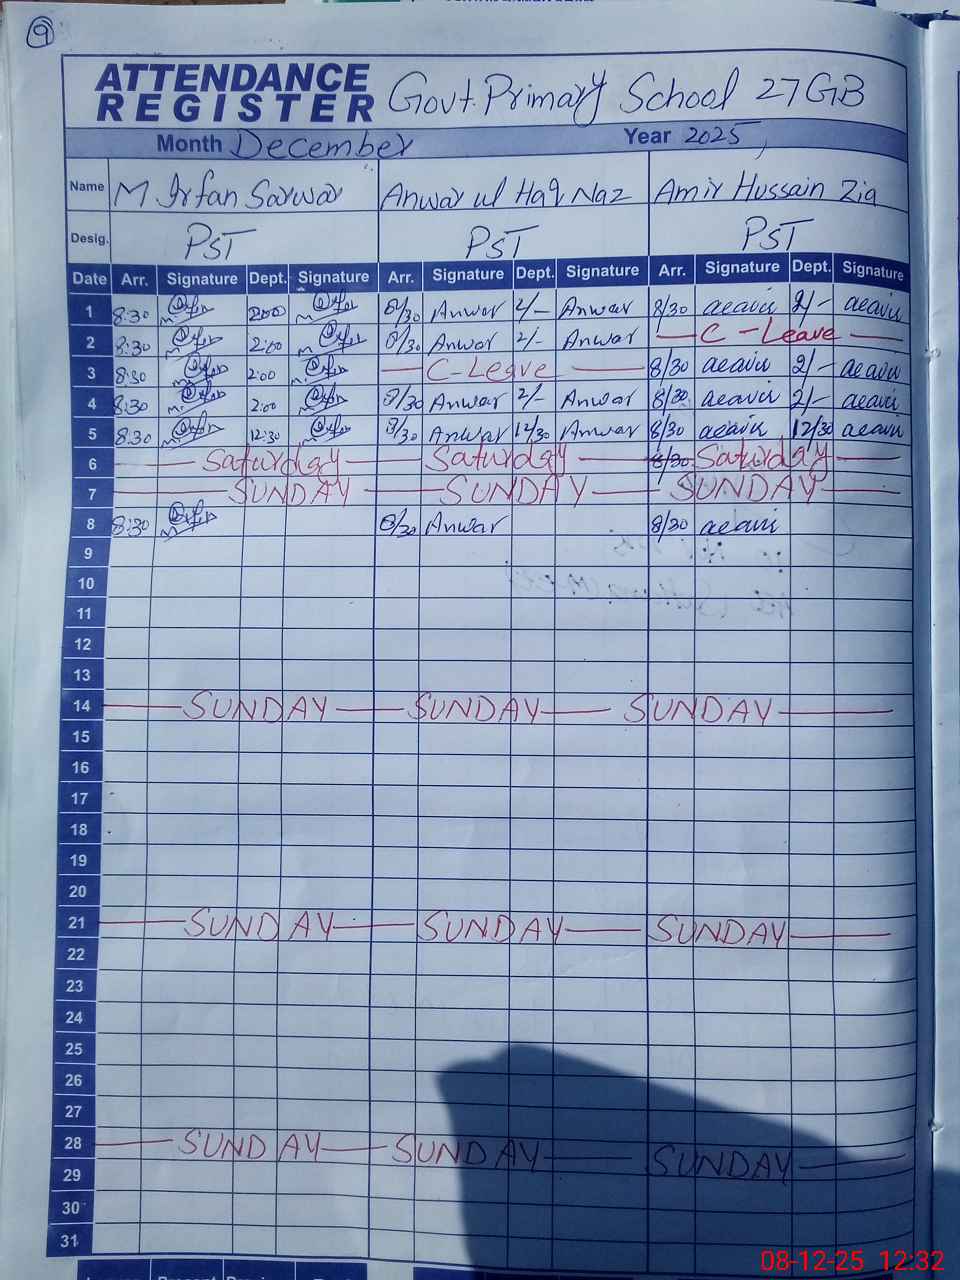 9
ATTENDANCE REGISTER Govt. Primary School 27GB
Month December Year 2025
Name M Irfan Sarwar Anwar ul Haq Naz Amir Hussain Zia
Desig. PST PST PST
Date Arr. Signature Dept. Signature Arr. Signature Dept. Signature Arr. Signature Dept. Signature
1 8:30 2:00 8/30 Anwar 2/- Anwar 8/30 2/-
2 8:30 2:00 8/30 Anwar 2/- Anwar C-Leave
3 8:30 2:00 C-Leave 8/30 2/-
4 8:30 2:00 8/30 Anwar 2/- Anwar 8/30 2/-
5 8:30 12:30 8/30 Anwar 12/30 Anwar 8/30 12/30
6 Saturday Saturday 8/30 Saturday
7 SUNDAY SUNDAY SUNDAY
8 8:30 8/30 Anwar 8/30
9
10
11
12
13
14 SUNDAY SUNDAY SUNDAY
15
16
17
18
19
20
21 SUNDAY SUNDAY SUNDAY
22
23
24
25
26
27
28 SUNDAY SUNDAY SUNDAY
29
30
31
08-12-25 12:32